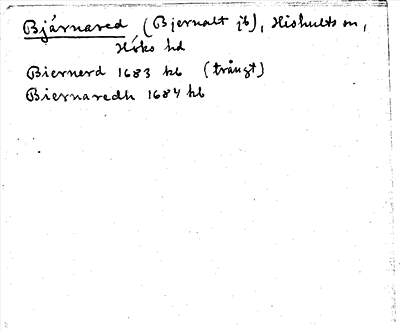 Bjärnared (Bjernalt jb), Hishults sn,
Höks hd
Biernerd 1683 kb (trångt)
Biernaredh 1684 kb